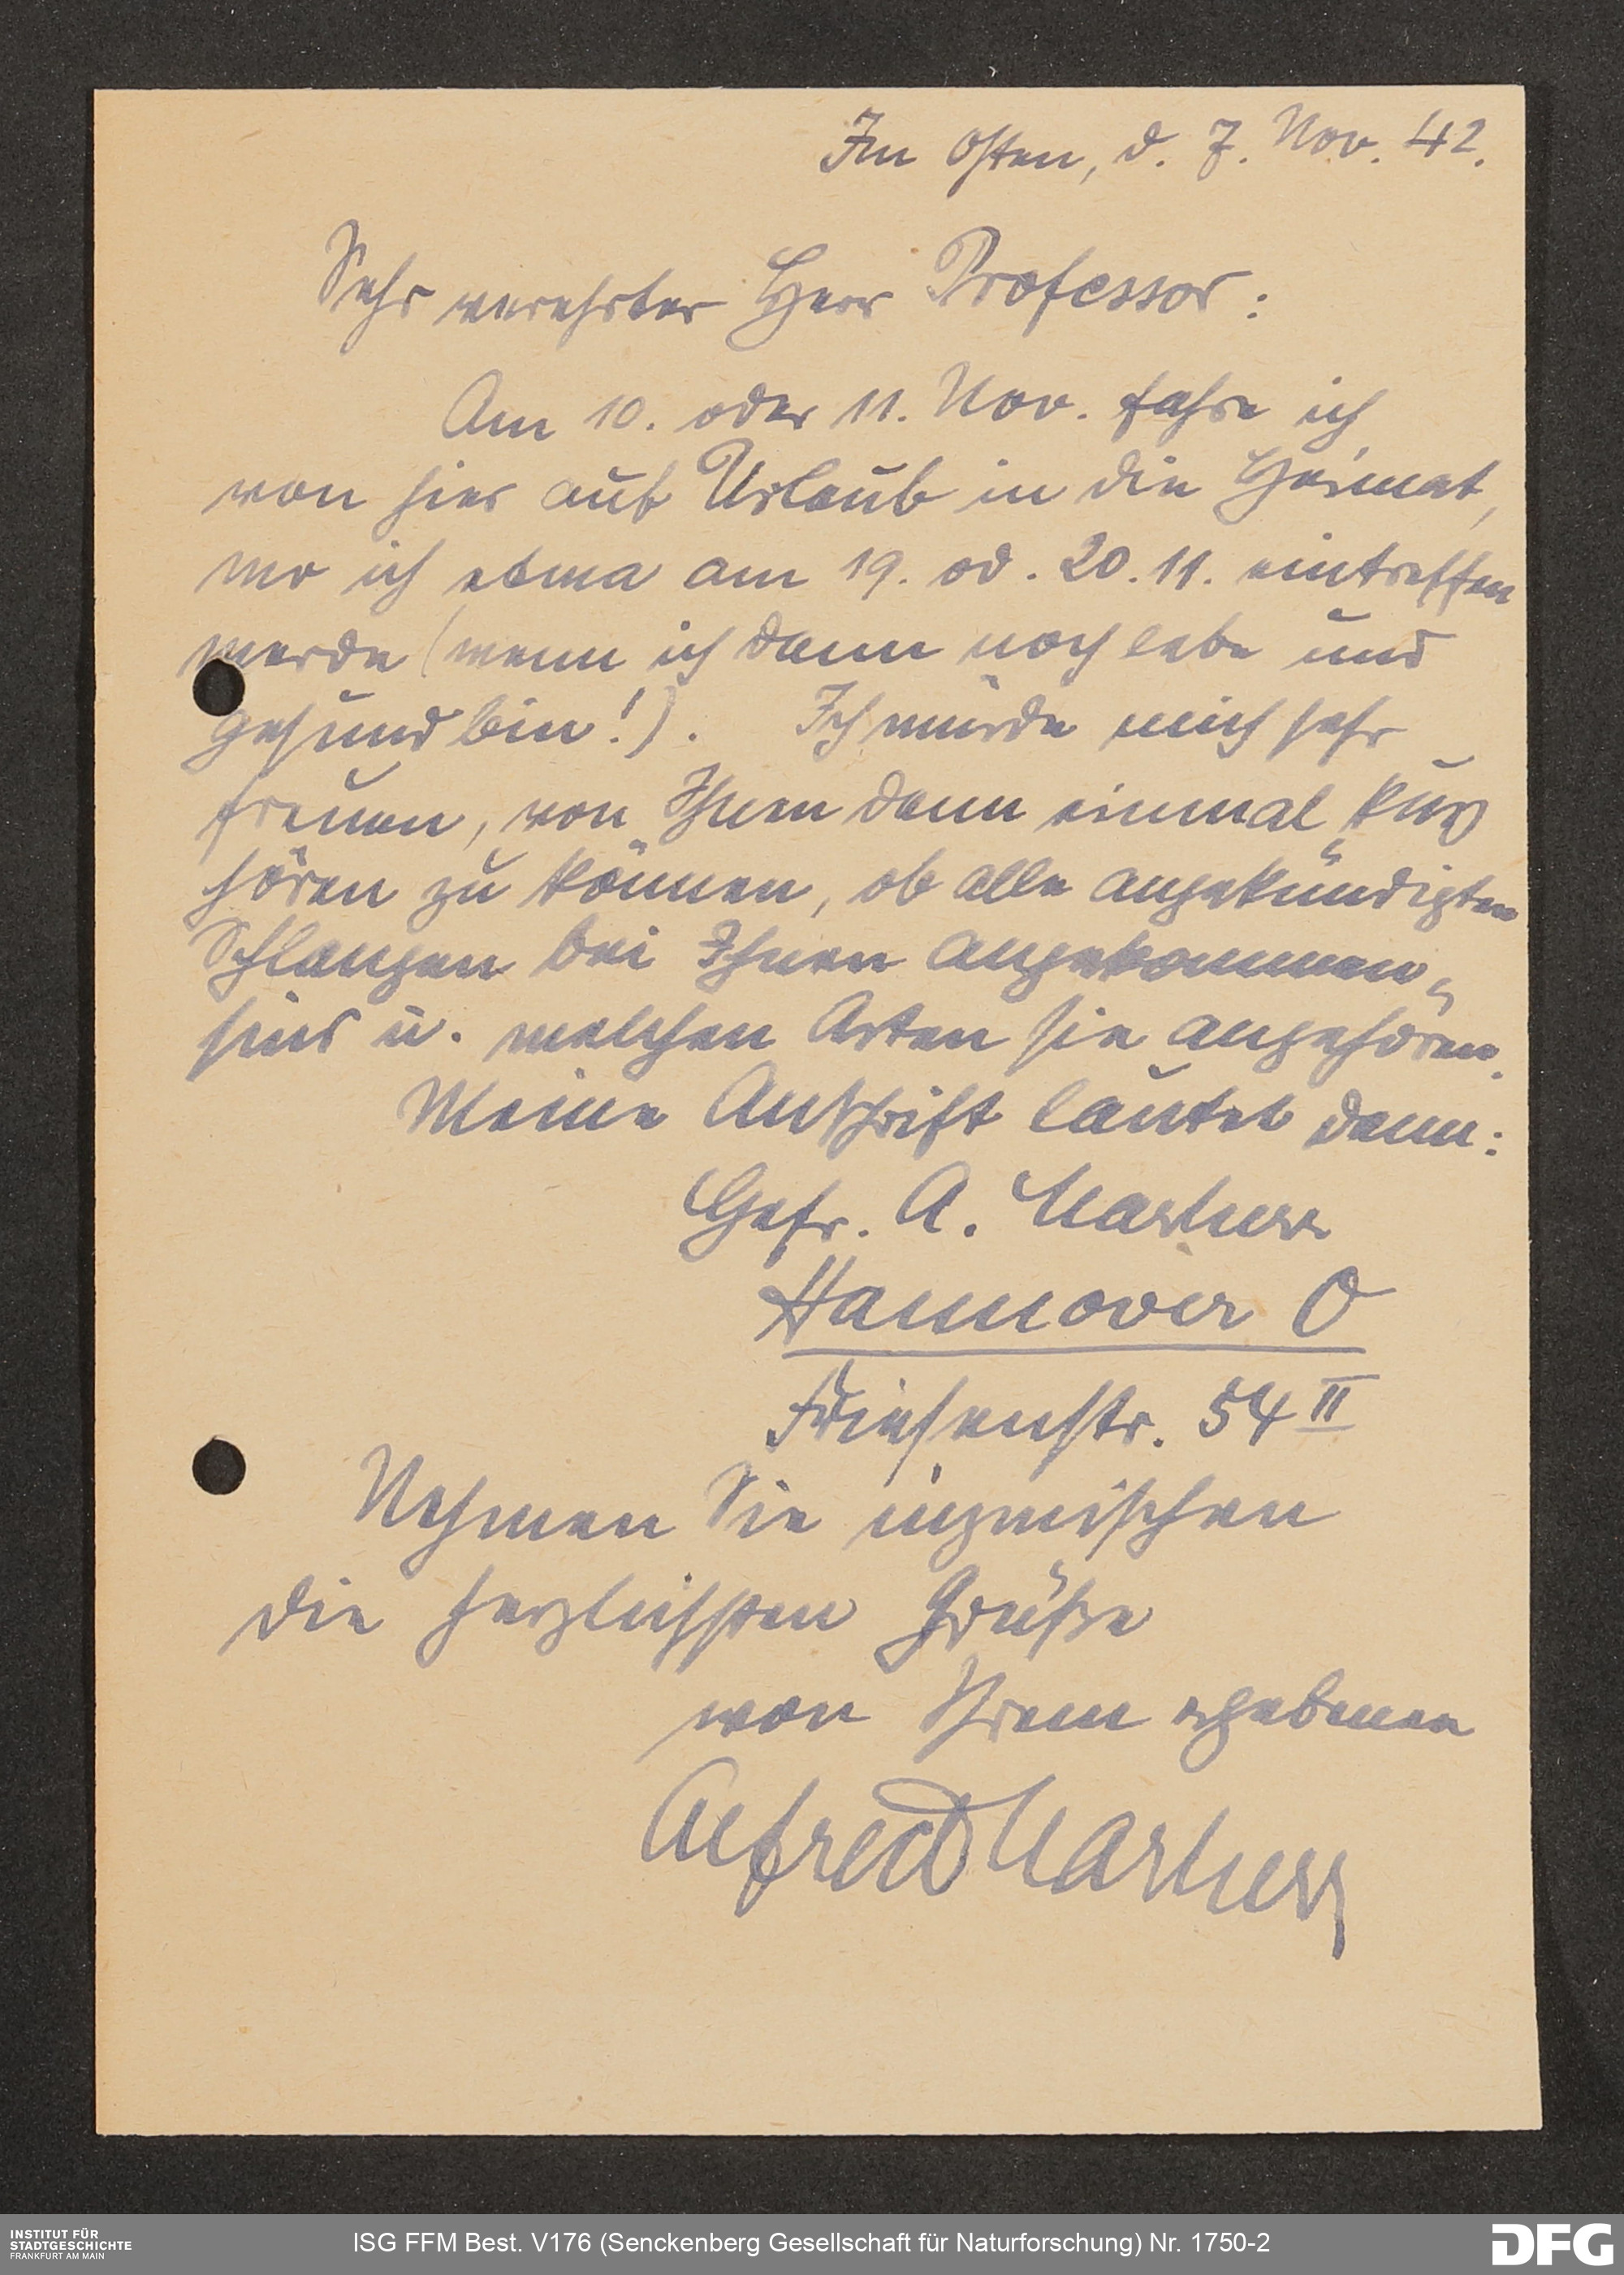 Im Osten, d. 7. Nov. 42.
Sehr verehrter Herr Professor:
Am 10. oder 11. Nov. fahre ich
von hier auf Urlaub in die Heimat,
wo ich etwa am 19. od. 20. 11. eintreffen
werde (wenn ich dann noch lebe und
gesund bin!). Ich würde mich sehr
freuen, von Ihnen dann einmal kurz
hören zu können, ob alle angekündigten
Schlangen bei Ihnen angekommen
sind u. welchen Arten sie angehören.
Meine Anschrift lautet dann:
Gefr. A.
Hannover O
Friesenstr. 54 II
Nehmen Sie inzwischen
die herzlichsten Grüße
von Ihrem ergebenen
Alfred
INSTITUT FÜR
STADTGESCHICHTE
FRANKFURT AM MAIN
ISG FFM Best. V176 (Senckenberg Gesellschaft für Naturforschung) Nr. 1750-2
DFG